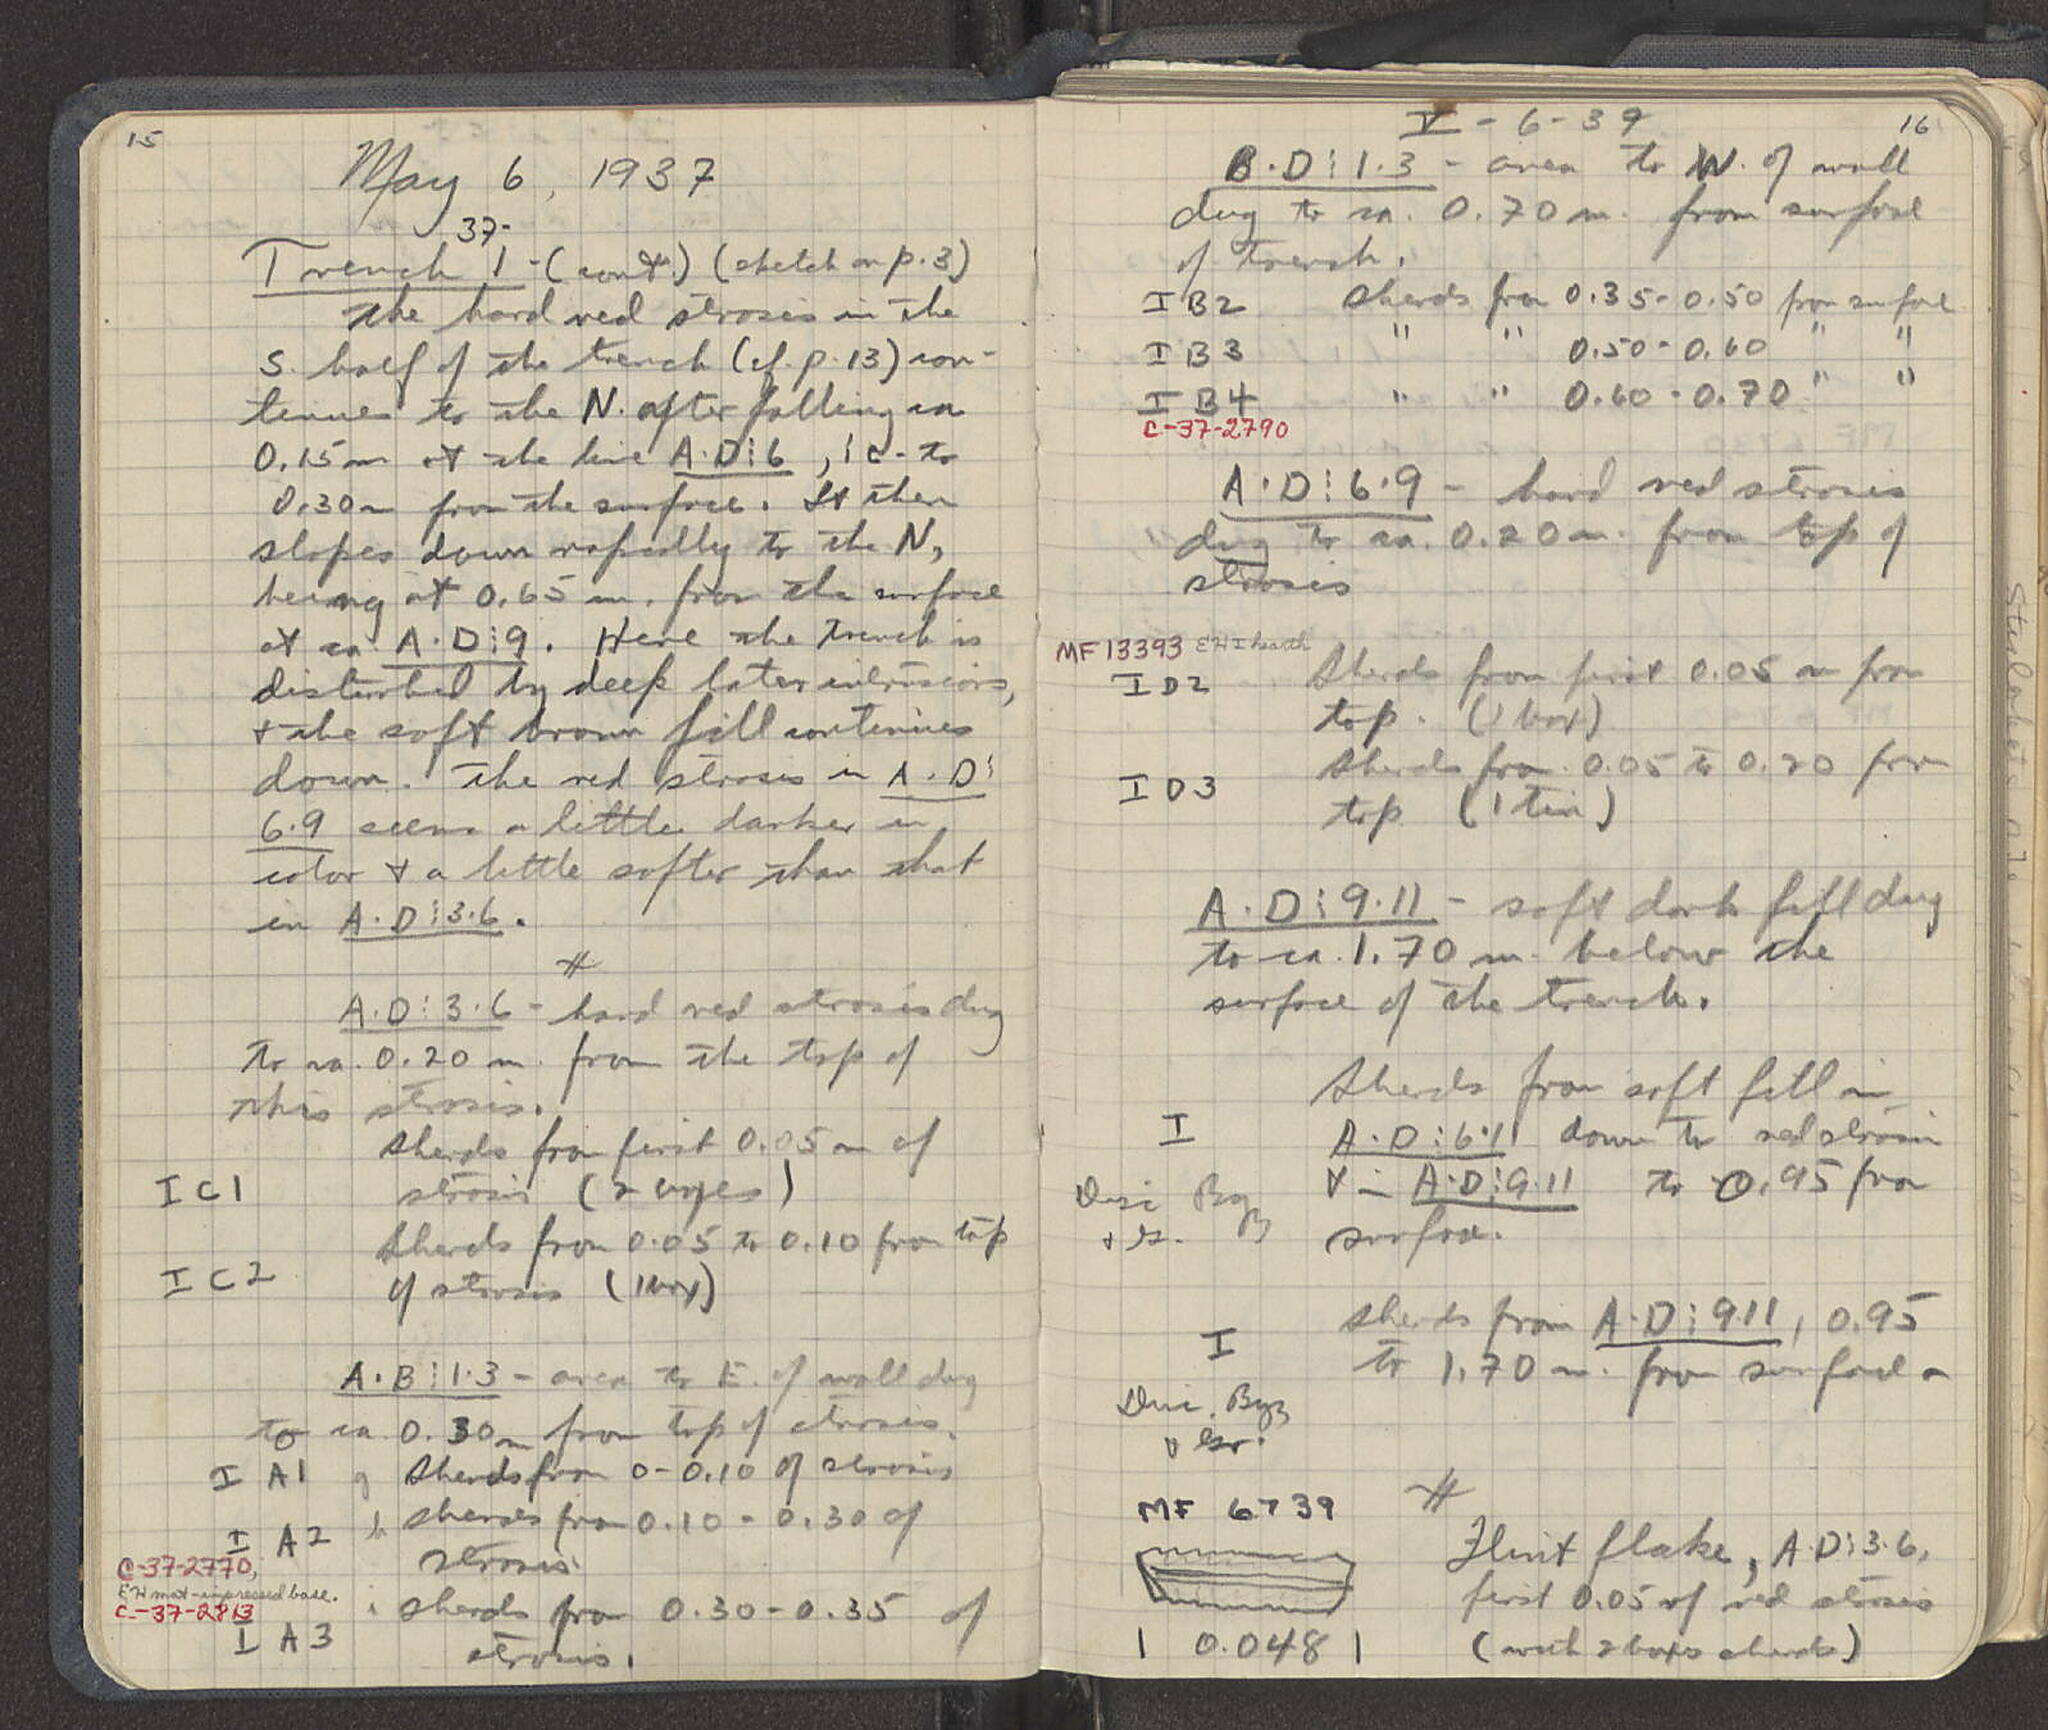 15
May 6, 1937
37-
Trench 1 - (cont.) (sketch on p. 3)
the hard red strosis in the
S. half of the trench (cf. p. 13) con-
tinues to the N. after falling ca
0.15 m at the line A·D⁝6, i.e. to
0.30 m from the surface. It then
slopes down rapidly to the N,
being at 0.65 m. from the surface
at ca A·D⁝9. Here the trench is
disturbed by deep later intrusions,
+ the soft brown fill continues
down. The red strosis in A·D⁝
6·9 seems a little darker in
color + a little softer than that
in A·D⁝3·6.
#
A·D⁝3·6 - hard red strosis dug
to ca. 0.20 m. from the top of
this strosis.
Sherds from first 0.05 m of
I C1 strosis (2 boxes)
Sherds from 0.05 to 0.10 from top
I C2 of strosis (1 box)
A·B⁝1·3 - area to E. of wall dug
to ca 0.30 m from top of strosis.
I A1 g Sherds from 0-0.10 of strosis
I A2 h sherds from 0.10 - 0.30 of
strosis
C-37-2770,
EH mat-impressed base.
C-37-2813
I A3 i sherds from 0.30-0.35 of
strosis.
V - 6 - 39 16
B·D⁝1·3 - area to W. of wall
dug to ca. 0.70 m. from surface
of trench.
I B2 Sherds from 0.35-0.50 from surface
I B3 " " 0.50-0.60 " "
I B4 " " 0.60-0.70 " "
C-37-2790
A·D⁝6·9 - hard red strosis
dug to ca. 0.20 m. from top of
strosis
MF 13393 EH I
I D2 Sherds from first 0.05 m from
top. (1 box)
I D3 Sherds from 0.05 to 0.20 from
top (1 tin)
A·D⁝9·11 - soft dark fill dug
to ca. 1.70 m. below the
surface of the trench.
Sherds from soft fill in
I A·D⁝6·11 down to red strosis
Disc. Byz + in A·D⁝9·11 to 0.95 from
+ Gr. surface.
I sherds from A·D⁝9·11, 0.95
to 1.70 m. from surface
Disc. Byz
+ Gr.
MF 6739 #
Flint flake, A·D⁝3·6,
first 0.05 of red strosis
| 0.048 | (with 2 boxes sherds)